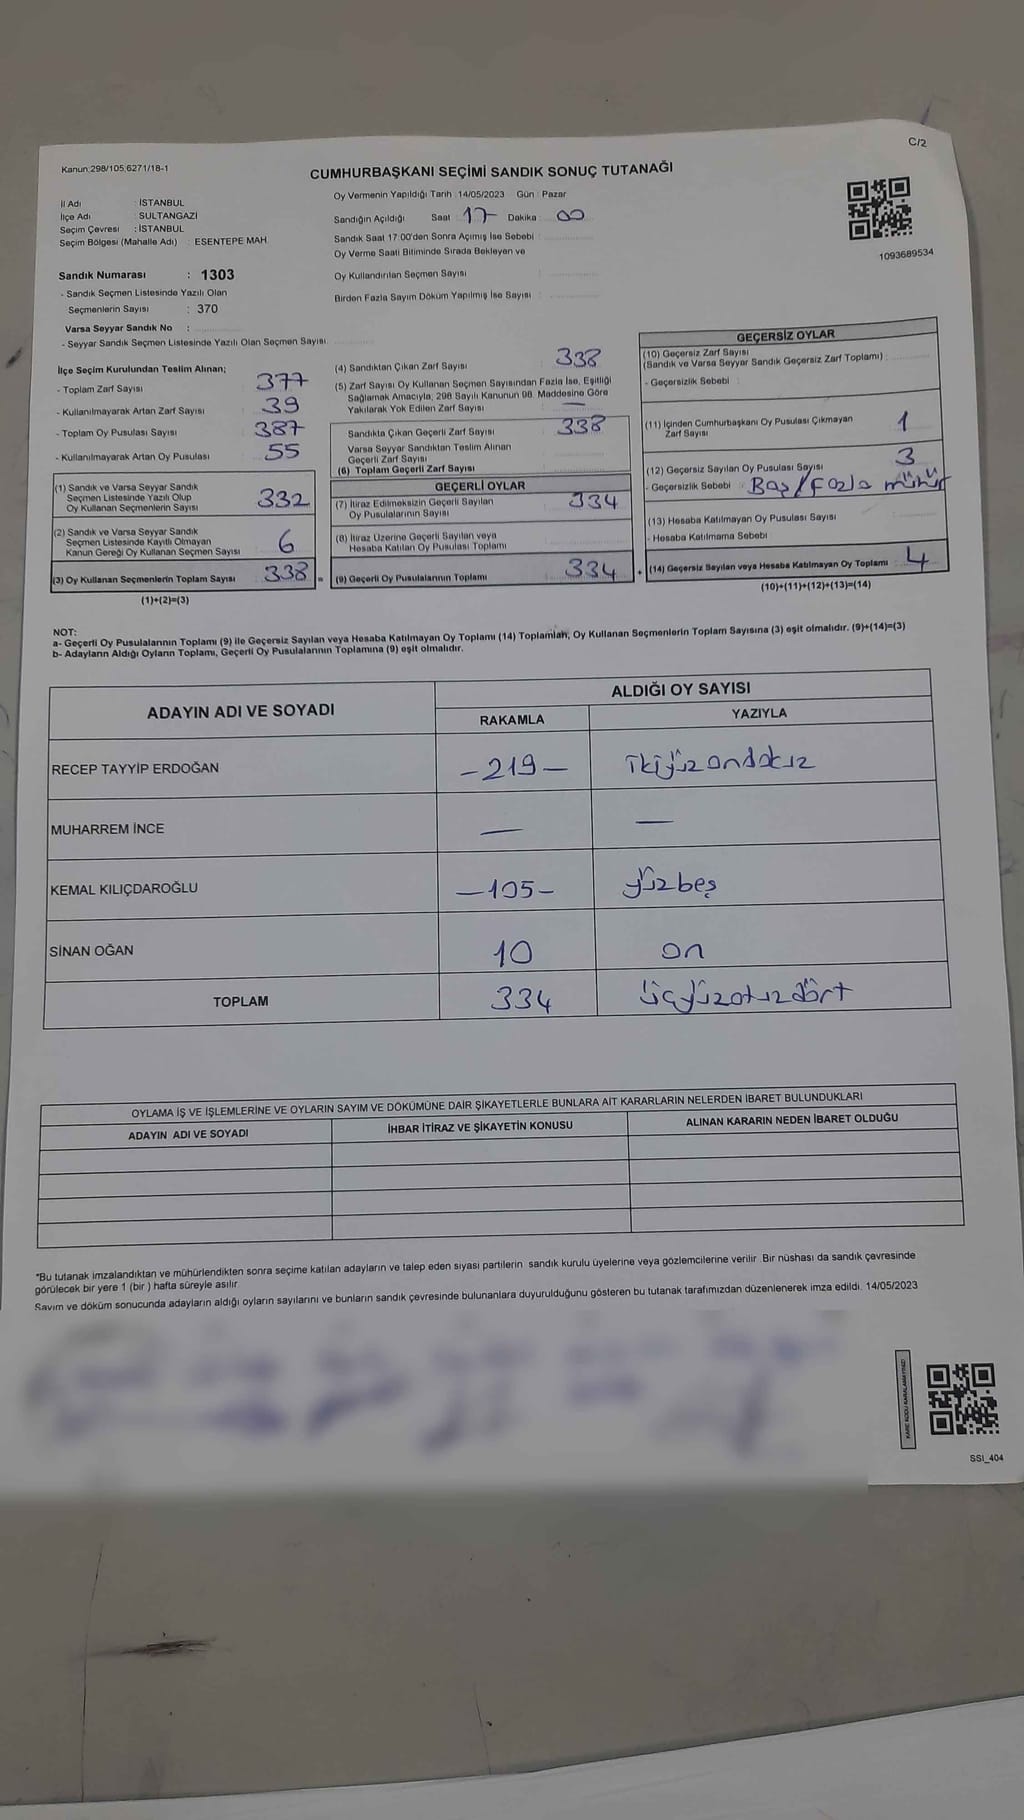 C/2
Kanun:298/105,6271/18-1
CUMHURBAŞKANI SEÇİMİ SANDIK SONUÇ TUTANAĞI
İl Adı : İSTANBUL
İlçe Adı : SULTANGAZİ
Seçim Çevresi : İSTANBUL
Seçim Bölgesi (Mahalle Adı) : ESENTEPE MAH.
Sandık Numarası : 1303
- Sandık Seçmen Listesinde Yazılı Olan
Seçmenlerin Sayısı : 370
Varsa Seyyar Sandık No :
- Seyyar Sandık Seçmen Listesinde Yazılı Olan Seçmen Sayısı
Oy Vermenin Yapıldığı Tarih :14/05/2023 Gün : Pazar
Sandığın Açıldığı Saat 17 Dakika : 00
Sandık Saat 17:00'den Sonra Açımış İse Sebebi :
Oy Verme Saati Bitiminde Sırada Bekleyen ve
Oy Kullandırılan Seçmen Sayısı :
Birden Fazla Sayım Döküm Yapılmış İse Sayısı :
1093689534
İlçe Seçim Kurulundan Teslim Alınan;
- Toplam Zarf Sayısı 377
- Kullanılmayarak Artan Zarf Sayısı 39
- Toplam Oy Pusulası Sayısı 387
- Kullanılmayarak Artan Oy Pusulası 55
(1) Sandık ve Varsa Seyyar Sandık
Seçmen Listesinde Yazılı Olup
Oy Kullanan Seçmenlerin Sayısı 332
(2) Sandık ve Varsa Seyyar Sandık
Seçmen Listesinde Kayıtlı Olmayan
Kanun Gereği Oy Kullanan Seçmen Sayısı 6
(3) Oy Kullanan Seçmenlerin Toplam Sayısı 338 =
(1)+(2)=(3)
(4) Sandıktan Çıkan Zarf Sayısı : 338
(5) Zarf Sayısı Oy Kullanan Seçmen Sayısından Fazla İse, Eşitliği
Sağlamak Amacıyla, 298 Sayılı Kanunun 98. Maddesine Göre
Yakılarak Yok Edilen Zarf Sayısı : —
Sandıkta Çıkan Geçerli Zarf Sayısı : 338
Varsa Seyyar Sandıktan Teslim Alınan
Geçerli Zarf Sayısı
(6) Toplam Geçerli Zarf Sayısı
GEÇERLİ OYLAR
(7) İtiraz Edilmeksizin Geçerli Sayılan
Oy Pusulalarının Sayısı : 334
(8) İtiraz Üzerine Geçerli Sayılan veya
Hesaba Katılan Oy Pusulası Toplamı :
(9) Geçerli Oy Pusulalarının Toplamı : 334 +
GEÇERSİZ OYLAR
(10) Geçersiz Zarf Sayısı
(Sandık ve Varsa Seyyar Sandık Geçersiz Zarf Toplamı) :
- Geçersizlik Sebebi :
(11) İçinden Cumhurbaşkanı Oy Pusulası Çıkmayan
Zarf Sayısı 1
(12) Geçersiz Sayılan Oy Pusulası Sayısı 3
- Geçersizlik Sebebi : Boş/Fazla mühür
(13) Hesaba Katılmayan Oy Pusulası Sayısı :
- Hesaba Katılmama Sebebi
(14) Geçersiz Sayılan veya Hesaba Katılmayan Oy Toplamı : 4
(10)+(11)+(12)+(13)=(14)
NOT:
a- Geçerli Oy Pusulalarının Toplamı (9) ile Geçersiz Sayılan veya Hesaba Katılmayan Oy Toplamı (14) Toplamları, Oy Kullanan Seçmenlerin Toplam Sayısına (3) eşit olmalıdır. (9)+(14)=(3)
b- Adayların Aldığı Oyların Toplamı, Geçerli Oy Pusulalarının Toplamına (9) eşit olmalıdır.
ADAYIN ADI VE SOYADI ALDIĞI OY SAYISI
RAKAMLA YAZIYLA
RECEP TAYYİP ERDOĞAN -219- ikiyüzondokuz
MUHARREM İNCE — —
KEMAL KILIÇDAROĞLU -105- yüzbeş
SİNAN OĞAN 10 on
TOPLAM 334 üçyüzotuzdört
OYLAMA İŞ VE İŞLEMLERİNE VE OYLARIN SAYIM VE DÖKÜMÜNE DAİR ŞİKAYETLERLE BUNLARA AİT KARARLARIN NELERDEN İBARET BULUNDUKLARI
ADAYIN ADI VE SOYADI İHBAR İTİRAZ VE ŞİKAYETİN KONUSU ALINAN KARARIN NEDEN İBARET OLDUĞU
*Bu tutanak imzalandıktan ve mühürlendikten sonra seçime katılan adayların ve talep eden siyasi partilerin sandık kurulu üyelerine veya gözlemcilerine verilir. Bir nüshası da sandık çevresinde
görülecek bir yere 1 (bir) hafta süreyle asılır.
Sayım ve döküm sonucunda adayların aldığı oyların sayılarını ve bunların sandık çevresinde bulunanlara duyurulduğunu gösteren bu tutanak tarafımızdan düzenlenerek imza edildi. 14/05/2023
KARE KODU KARALAMAYINIZ!
SSI_404